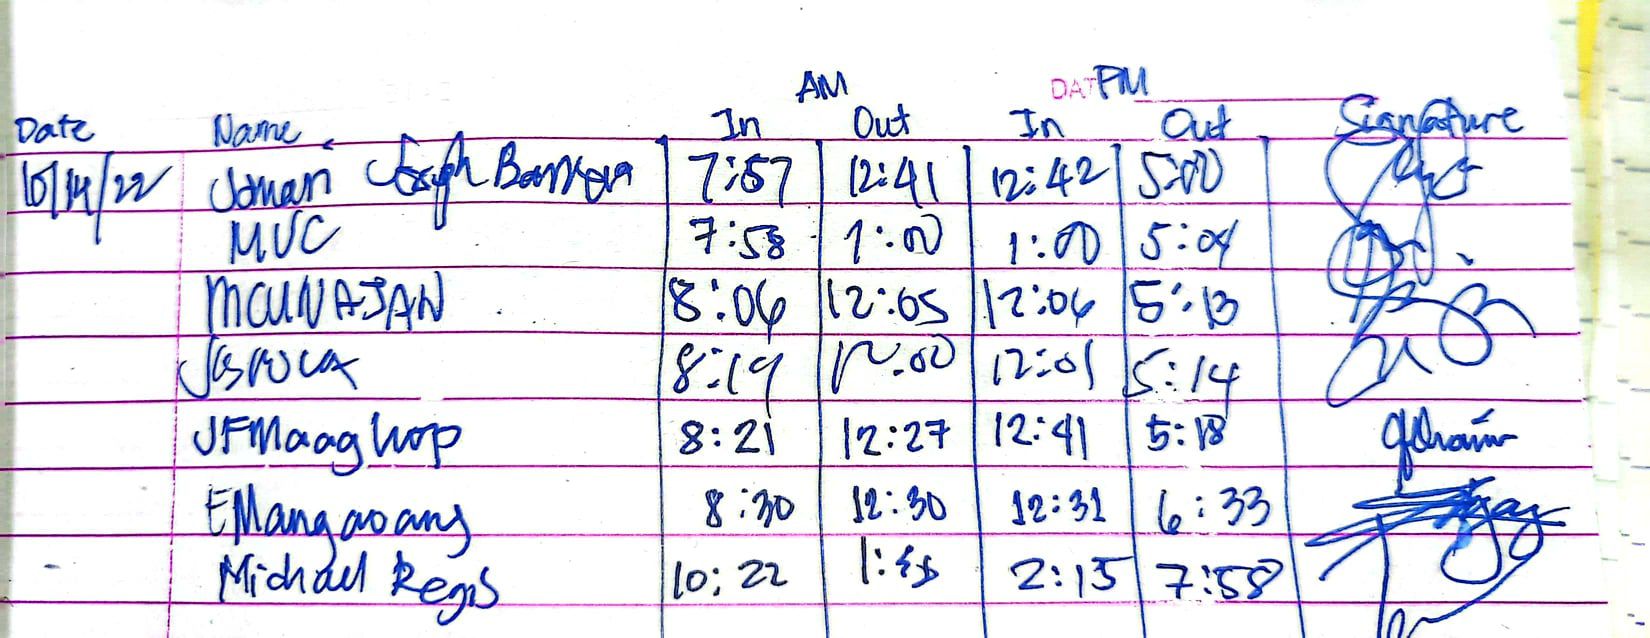 AM DATE PM
Date Name In Out In Out Signature
10/14/22 Joman Joseph 7:57 12:41 12:42 5:00
MVC 7:58 1:00 1:00 5:04
MCUNAJAN 8:06 12:05 12:06 5:13
8:19 12:00 12:01 5:14
JFMaaghop 8:21 12:27 12:41 5:18
EMangaoang 8:30 12:30 12:31 6:33
Michael Regis 10:22 2:15 7:58